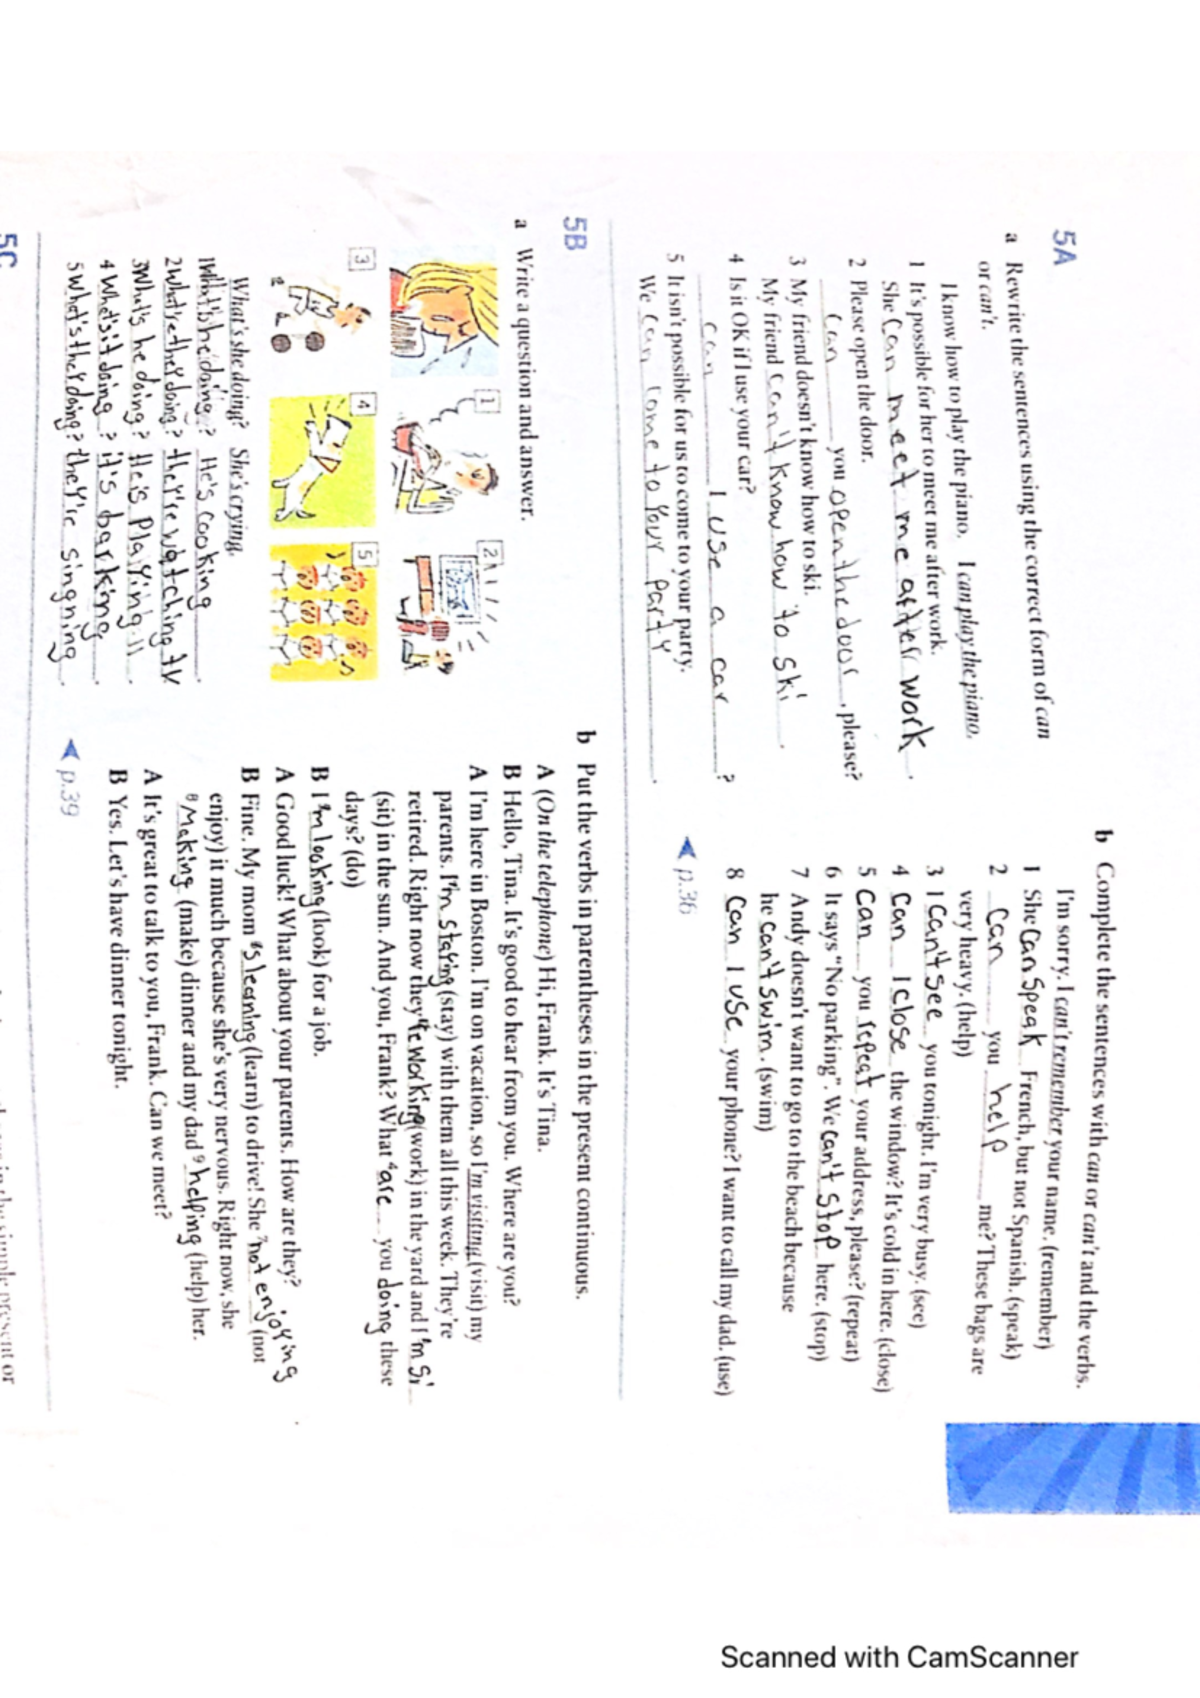 5A
a Rewrite the sentences using the correct form of can
or can't.
I know how to play the piano. I can play the piano.
1 It's possible for her to meet me after work.
She can meet me after work.
2 Please open the door.
can you open the dour, please?
3 My friend doesn't know how to ski.
My friend can't know how to ski.
4 Is it OK if I use your car?
can I use a car?
5 It isn't possible for us to come to your party.
We can come to your party.
b Complete the sentences with can or can't and the verbs.
I'm sorry. I can't remember your name. (remember)
1 She can speak French, but not Spanish. (speak)
2 can you help me? These bags are
very heavy. (help)
3 I can't see you tonight. I'm very busy. (see)
4 can I close the window? It's cold in here. (close)
5 can you repeat your address, please? (repeat)
6 It says "No parking". We can't stop here. (stop)
7 Andy doesn't want to go to the beach because
he can't swim. (swim)
8 can I use your phone? I want to call my dad. (use)
p.36
5B
a Write a question and answer.
1
2
3
4
5
What's she doing? She's crying.
1 What's he doing? He's cooking.
2 what're they doing? they're watching tv.
3 What's he doing? He's Playing
4 What's it doing? it's barking.
5 what's they doing? they're singning.
b Put the verbs in parentheses in the present continuous.
A (On the telephone) Hi, Frank. It's Tina.
B Hello, Tina. It's good to hear from you. Where are you?
A I'm here in Boston. I'm on vacation, so I'm visiting (visit) my
parents. I'm staying (stay) with them all this week. They're
retired. Right now they're working (work) in the yard and I'm si
(sit) in the sun. And you, Frank? What 4 are you doing these
days? (do)
B I'm looking (look) for a job.
A Good luck! What about your parents. How are they?
B Fine. My mom 6's leaning (learn) to drive! She 7 not enjoying (not
enjoy) it much because she's very nervous. Right now, she
8 Making (make) dinner and my dad 9 helping (help) her.
A It's great to talk to you, Frank. Can we meet?
B Yes. Let's have dinner tonight.
p.39
5C
Scanned with CamScanner